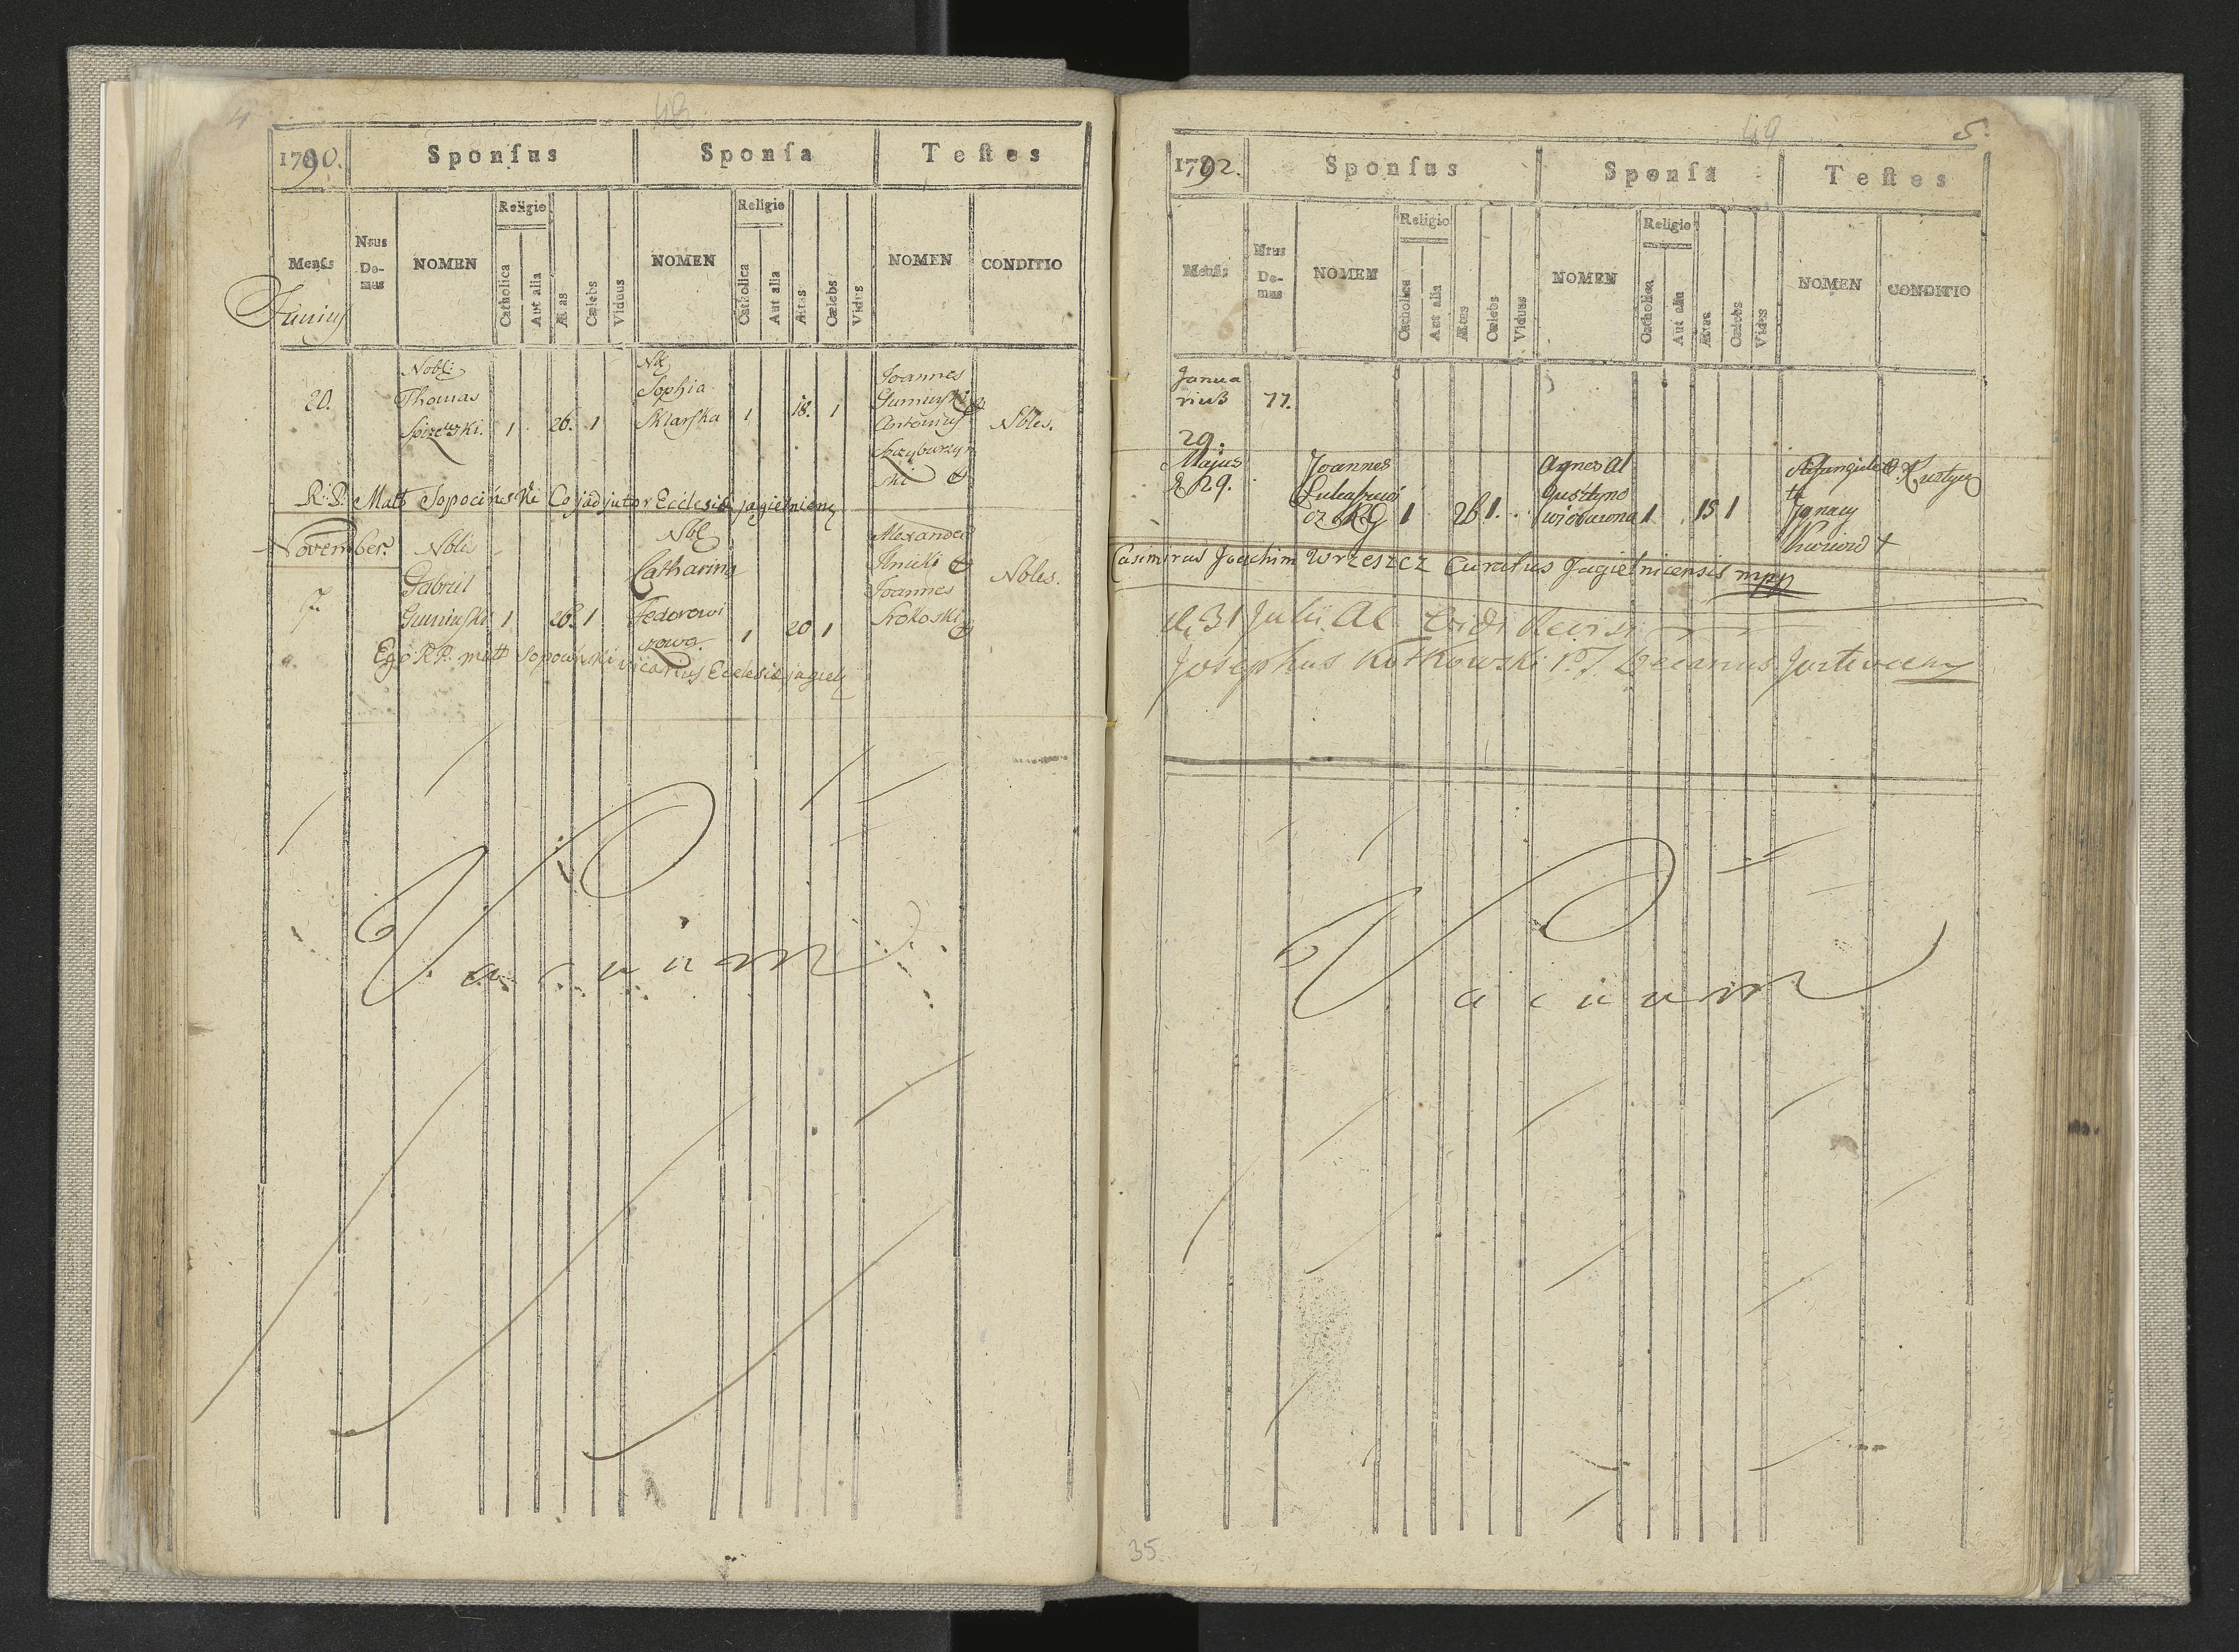 4
48
1790.
Sponſus
Sponſa
Teſtes
Menſis
Nrus Do-mus
NOMEN
Religio
Catholica
Aut alia
Ætas
Cælebs
Viduus
NOMEN
Religio
Catholica
Aut alia
Ætas
Cælebs
Vidua
NOMEN
CONDITIO
Junius
20.
Nobl:
Thomas
1
26.
1
Nbl
Sophia
Sklarska
1
18.
1
Joannes
Guminski
Antonius
ski
Nbles.
R: P. Matt Sopocinski Cojadjutor Ecclesiæ jagielnicens
November.
7.
Nblis
Gabriel
Guminski
1
26.
1
Nbl
Catharina
Fedorowi
czowa.
1
20
1
Alexander
Ilnicki
Joannes
Krokoski
Nobles.
Ego R.P. Matt Sopocinski vicarius Ecclesiæ jagiel
Vacuum
49
5.
1792.
Sponſus
Sponſa
Teſtes
Menſis
Nrus Do-mus
NOMEN
Religio
Catholica
Aut alia
Ætas
Cælebs
Viduus
NOMEN
Religio
Catholica
Aut alia
Ætas
Cælebs
Vidua
NOMEN
CONDITIO
Janua
rius
77.
29.
Majus
29.
Joannes
1
26
1.
Agnes Au
gustyno
wiczowna
1
18
1
Ignacy
Casimirus Joachim Wrzeszcz Curatus Jagielnicensis mpp
d. 31 Julii Al Vidi Revisi
Josephus Kotkowski P.T. Decanus
Vacuum
35